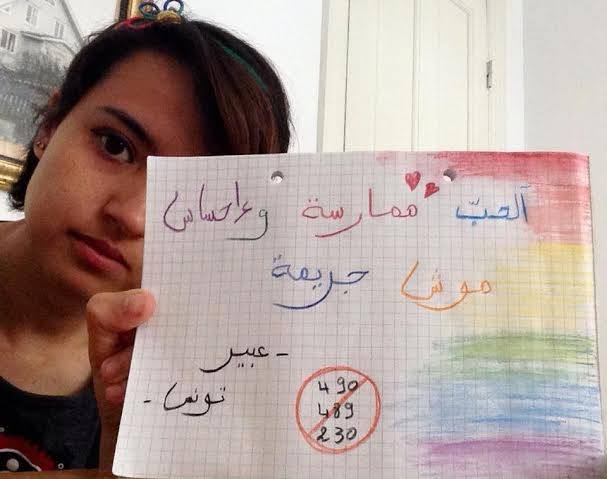 الحبّ ممارسة وإحساس
موش جريمة
- عبير
تونس -
490
489
230